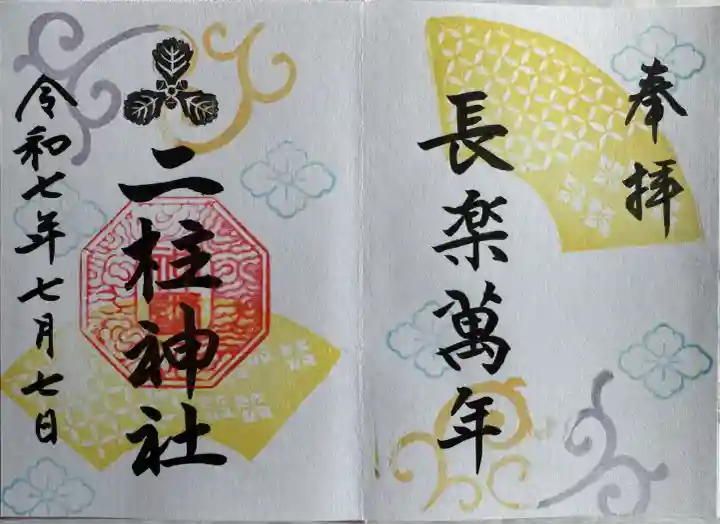 奉拝
長楽萬年
二柱神社
令和七年七月七日